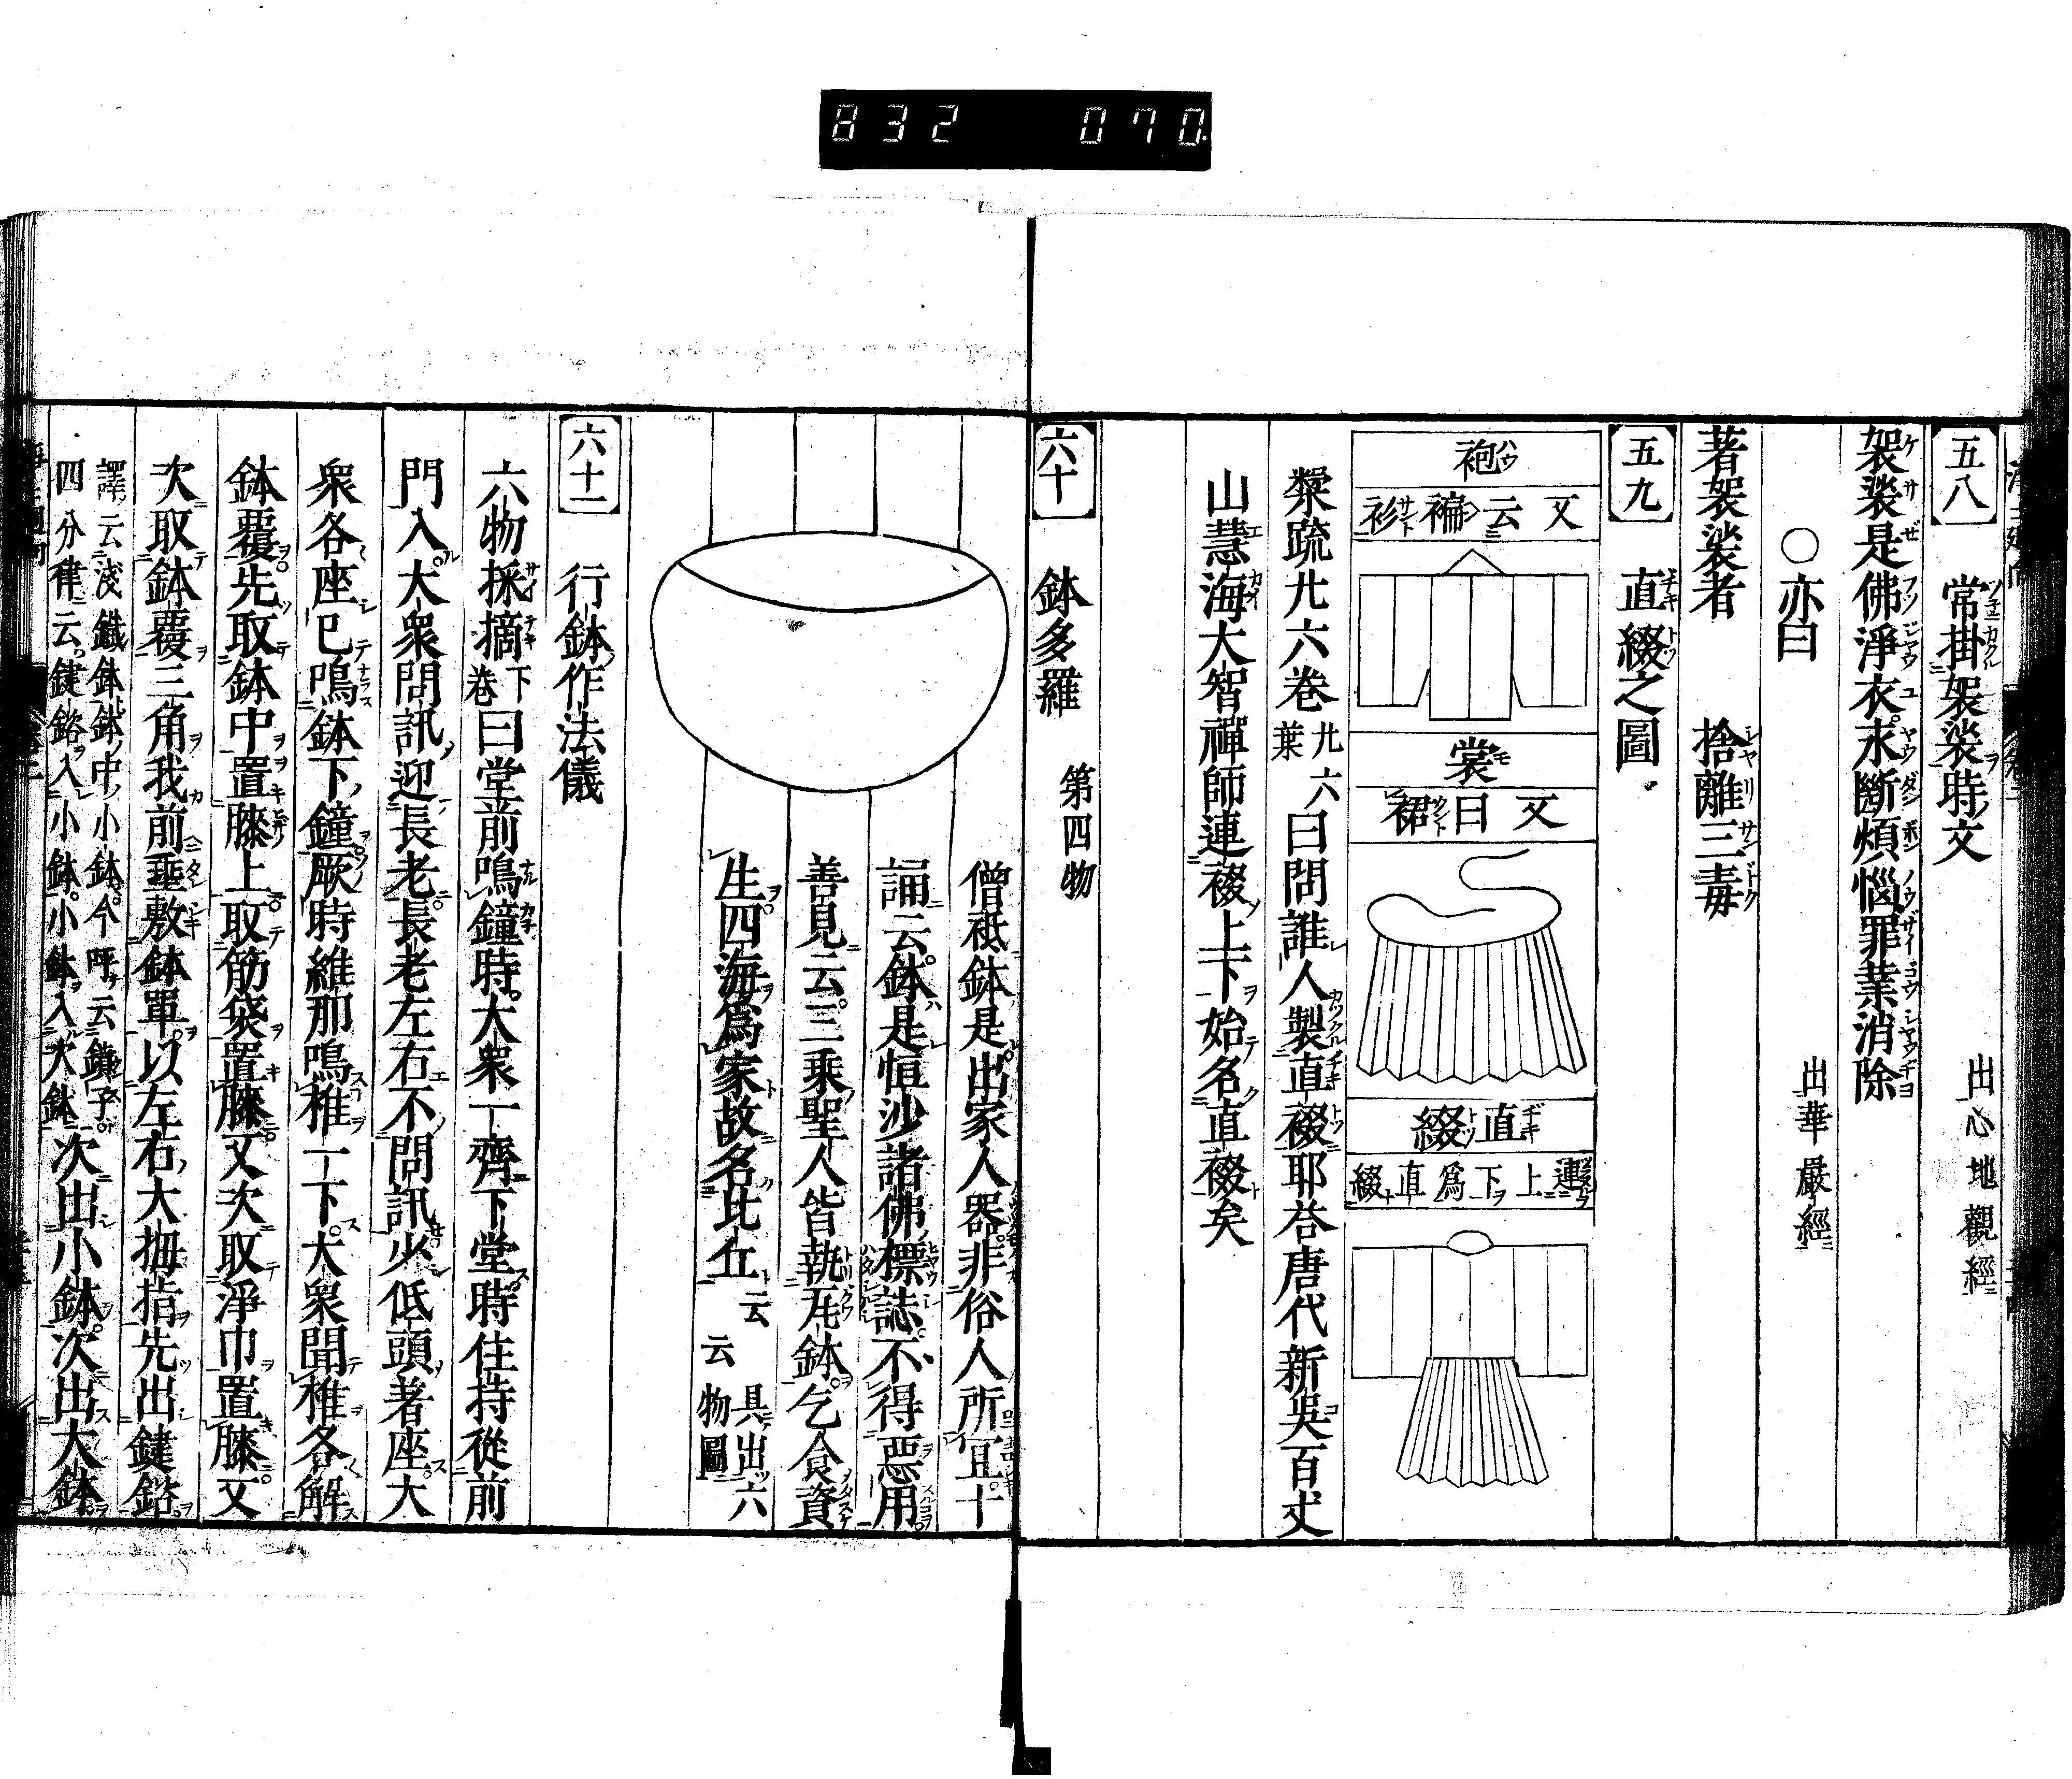 832 070
五八 常掛袈裟時文 出心地觀經
袈裟是佛淨衣永斷煩惱罪業消除
○亦曰 出華嚴經
著袈裟者 捨離三毒
五九 直綴之圖
袍
又云褊衫
裳
又曰裙
直綴
連上下爲直綴
槩䟽廿六卷廿六葉曰問誰人製直裰耶答唐代新吳百丈
山慧海大智禪師連裰上下始名直裰矣
六十 鉢多羅 第四物
僧祇鉢是出家人器非俗人所宜十
誦云鉢是恒沙諸佛標誌不得惡用
善見云三乘聖人皆執瓦鉢乞食資
生四海爲家故名比丘云云 具出六物圖
六十一 行鉢作法儀
六物採摘下卷曰堂前鳴鐘時大衆一齊下堂時住持從前
門入大衆問訊迎長老長老左右不問訊少低頭著座大
衆各座已鳴鉢下鐘厥時維那鳴椎一下大衆聞椎各解
鉢覆先取鉢中置膝上取筋袋置膝又次取淨巾置膝又
次取鉢覆三角我前垂敷鉢單以左右大拇指先出鍵鎔
譯云淺鐵鉢鉢中小鉢今呼云鎖子
四分律云鍵鎔入小鉢小鉢入大鉢次出小鉢次出大鉢